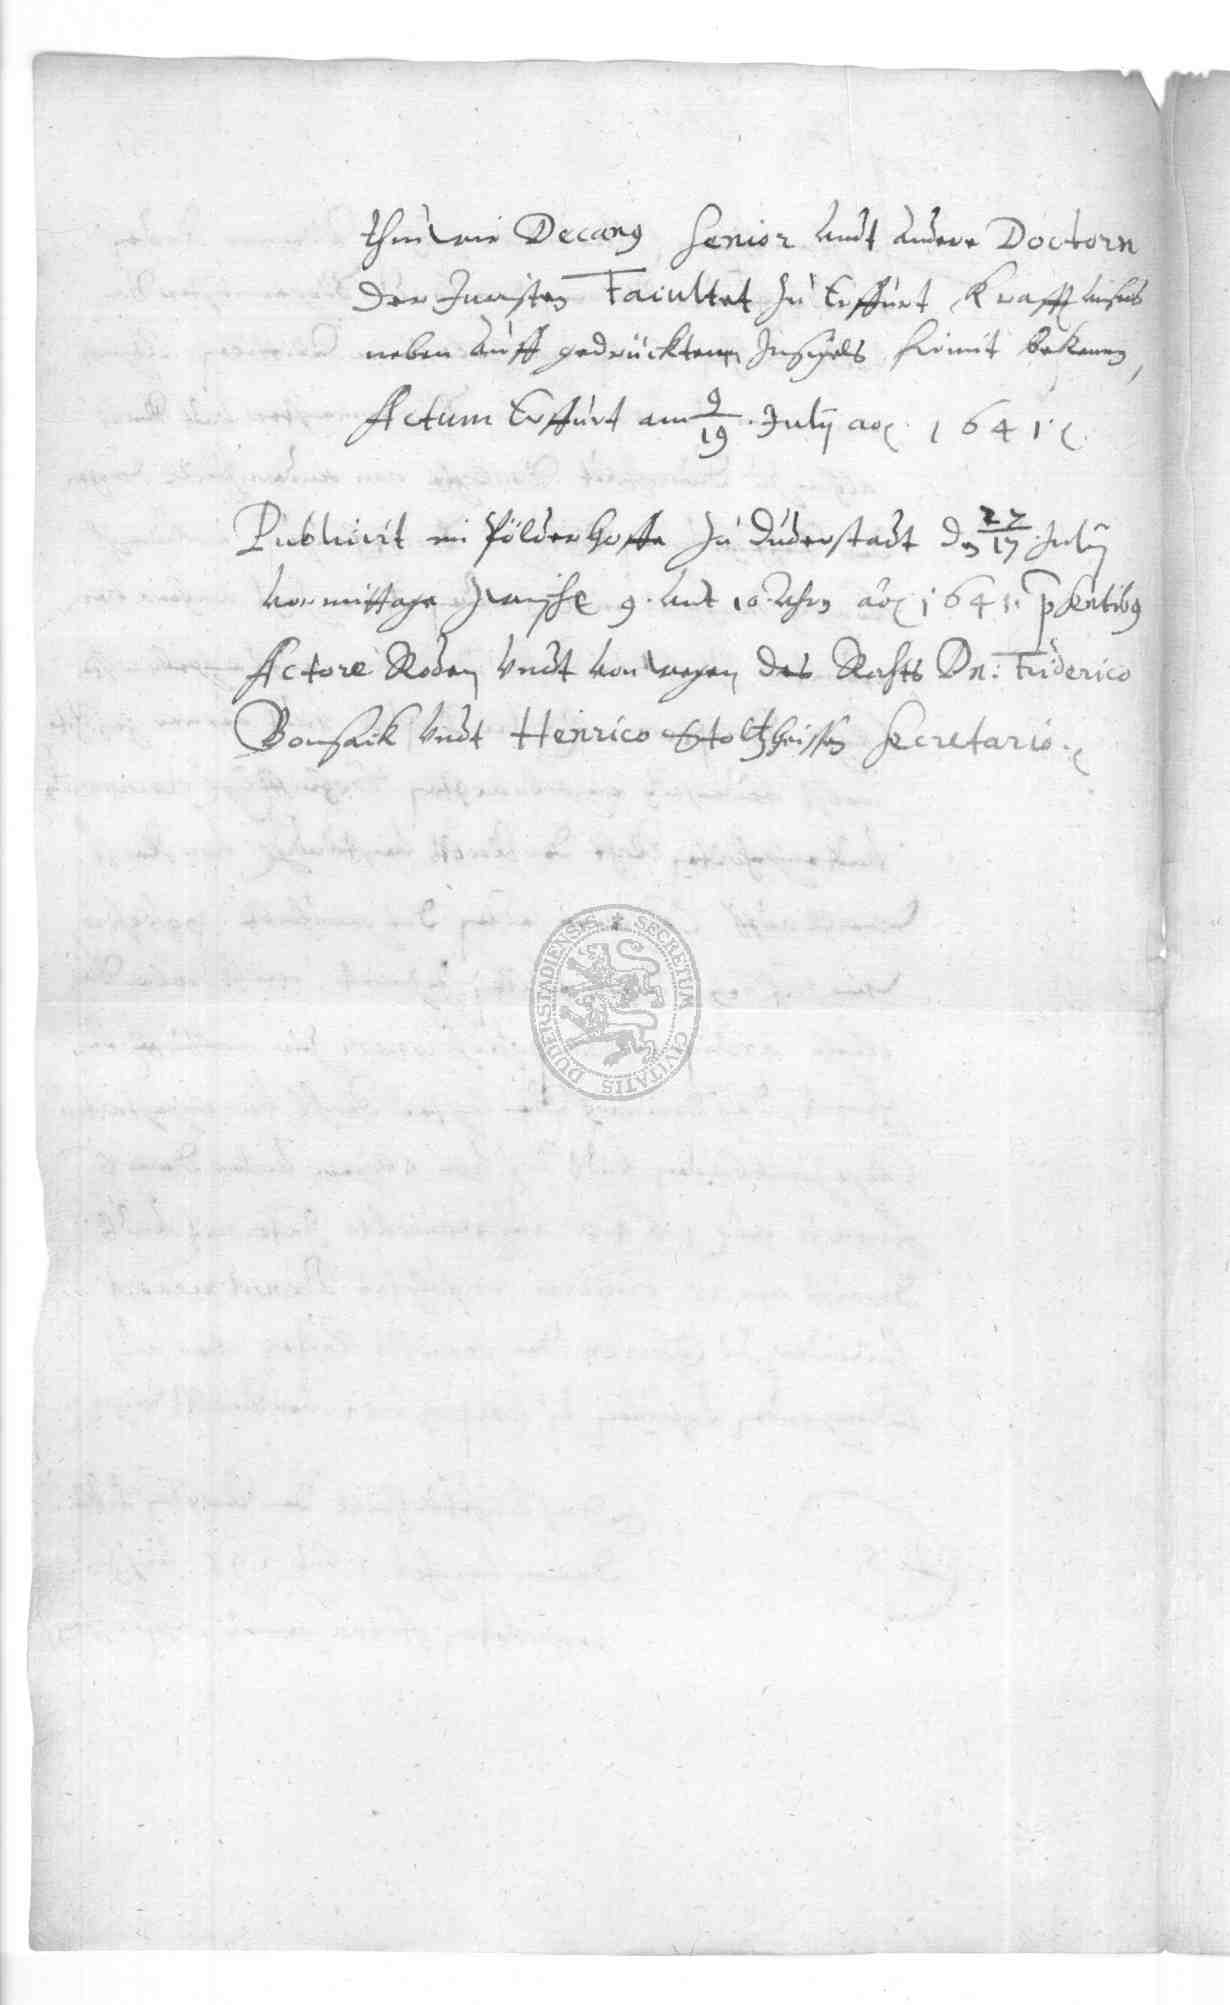 thun wir Decanus Senior undt andere Doctorn
der Juristen Facultet zu Erffurt Krafft unsers
neben auff gedrückten Insigels hirmit bekennen,
Actum Erffurt am 9/19. Julij ao. 1641.
Publicirt im Pölder Hoffe zu Duderstadt den 27/17. Julij
vormittage zwische 9. undt 10. Uhrn ao. 1641. pnsentibus
Actore Roden undt von wegen des Rahts Dn: Friderico
undt Henrico Stoltzheissen Secretario.
SECRETUM CIVITATIS DUDERSTADIENSIS